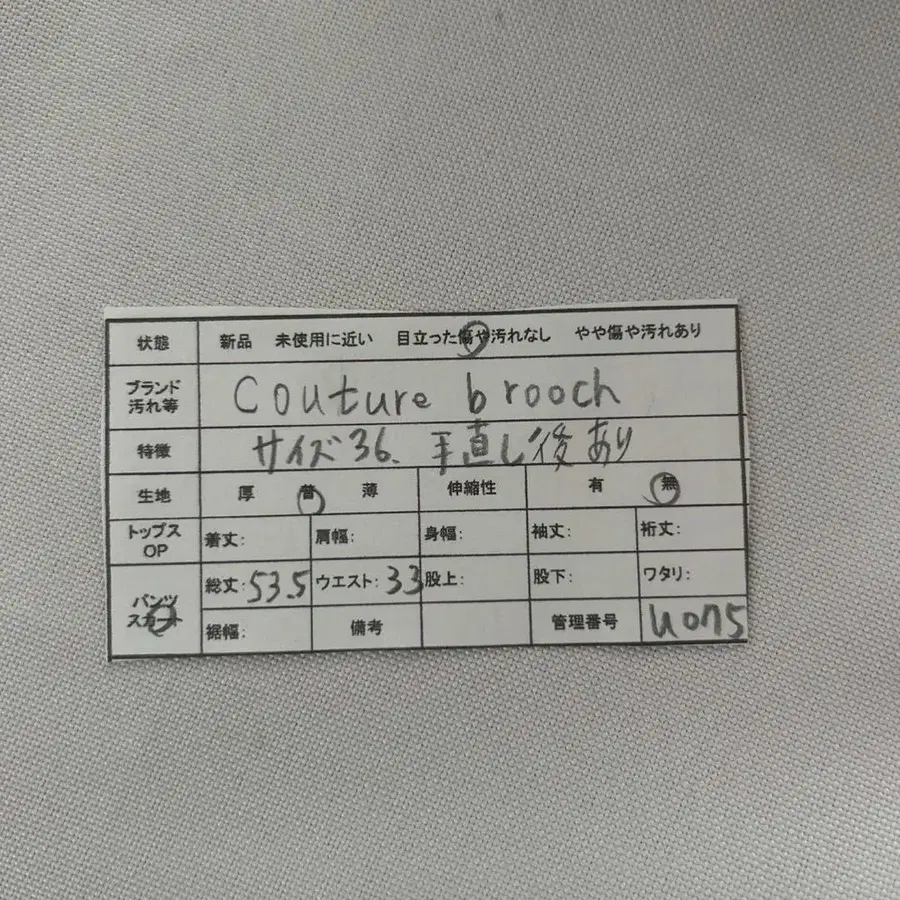 状態 新品 未使用に近い 目立った傷や汚れなし やや傷や汚れあり
ブランド
汚れ等
Couture brooch
特徴 サイズ36、手直し後あり
生地 厚 普 薄 伸縮性 有 無
トップス
OP
着丈: 肩幅: 身幅: 袖丈: 裄丈:
パンツ
スカート
総丈:53.5 ウエスト:33 股上: 股下: ワタリ:
裾幅: 備考 管理番号